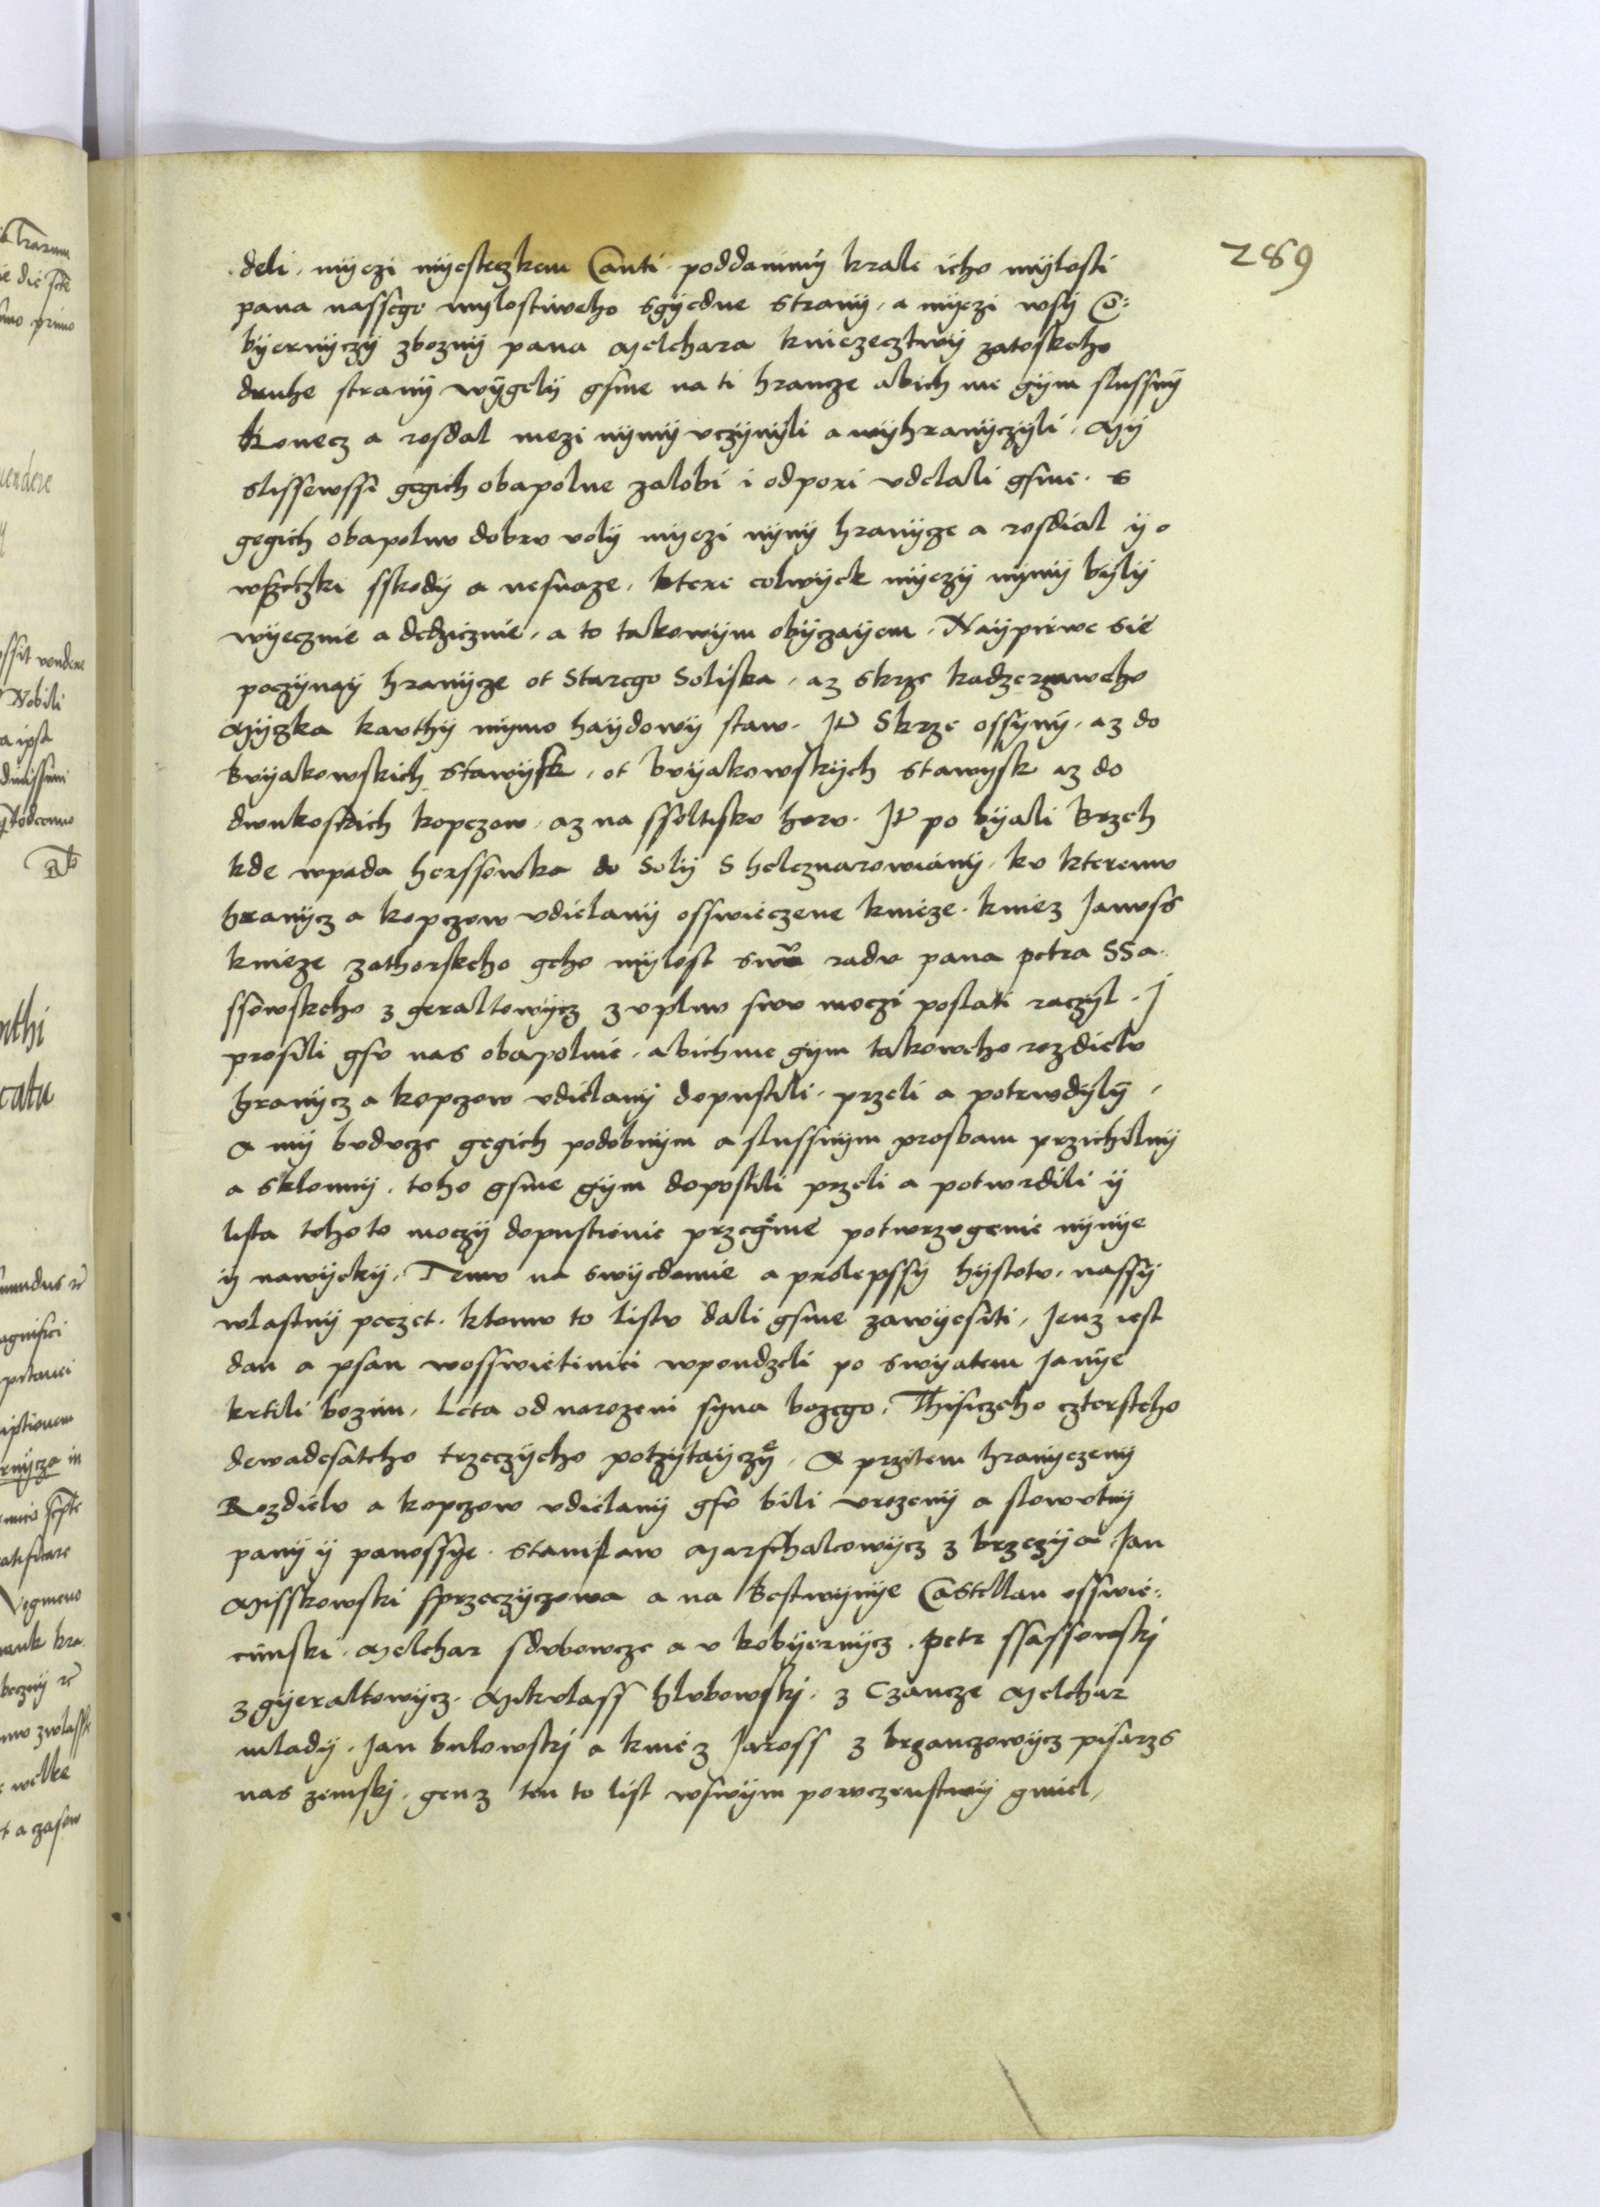 289
deli, myezi myesteczkem Canti poddanimy krale ieho mylosti
pana nassego mylostiweho sgyedne strany, a myezi wsy Co:
byernyczy zbozny pana Melchara knieczecztwy zatoskeho
druhe strany wygely gsme na ti hrancze abich me gym slussny
Konecz a rosdal mezi nymy vczynyli a wyhranyczyli, My
slissewssi gegich obapolne zalobi i odpori vdelali gsme. s
gegich obapolnv dobrv voly myezi nymy hranycze a rosdial y o
wssetzki sskody a nesnaze, kteri colwyek myezy nymy byly
wyecznie a dedzicznie, a to takowym obyczayem, Nayprwe sie
poczynay hranycze ot Starego Soliska, az skrze kadzerzaweho
Myczka kavthy mymo haydowy staw. It Skrze ossyny, az do
Bvyakowskich stawysk, ot bvyakowskych stawysk az do
dwukoskich kopczow, az na ssoltisku horv. It po byali Brzeh
kde wpada herssowka do Soly S heleznarowiany, kv kteremv
hranycz a kopczow vdielany osswieczene knieze. kniez Janvss
knieze zathorskeho geho mylost swv radv pana petra SSa
ssowskeho z geraltowycz z vplnv swv moczi poslati raczyl. J
prosili gsv nas obapolnie, abichme gym takoweho rozdielv
hranycz a kopczow vdielany dopustili, przeli a potwrdyly,
A my bvdvcze gegich podobnym a slussnym prosbam przichilny
a sklonny, toho gsme gym dopostili przeli a potwrdili y
lista tohoto moczy dopustienie przegme potwrzvgenie nynye
y nawyeky, Temv na swyedomie a prolepssy hystotv, nassy
wlastny peczet. ktomv to listv dali gsme zawyesiti, Jenz iest
dan a psan wosswietimci wpondzeli po swyatem Janye
krtili bozim, Leta od narozeni syna bozego, Thisiczeho czterstcho
dewadesatcho trzeczyeho potzytayczy, A przitem hranyczeny
Rozdielv a kopczow vdielany gsv bili vrozeny a slowvtny
pany y panossye. Stanislaw Marschalcowycz z brzezya Jan
Misskowski sprzeczyczowa a na Bestwynye Castellan osswie:
cimski. Melchar sdvbowcze a v kobyernycz. petr ssassowskj
z gyeraltowycz. Mikvlass hlvbowskj. z Czancze Melchar
mlady. Jan bulowskj a kniez Jaross z brzanczowycz pisarzs
nas zemskj, genz ten to list wswym porvczenstwy gmiel,